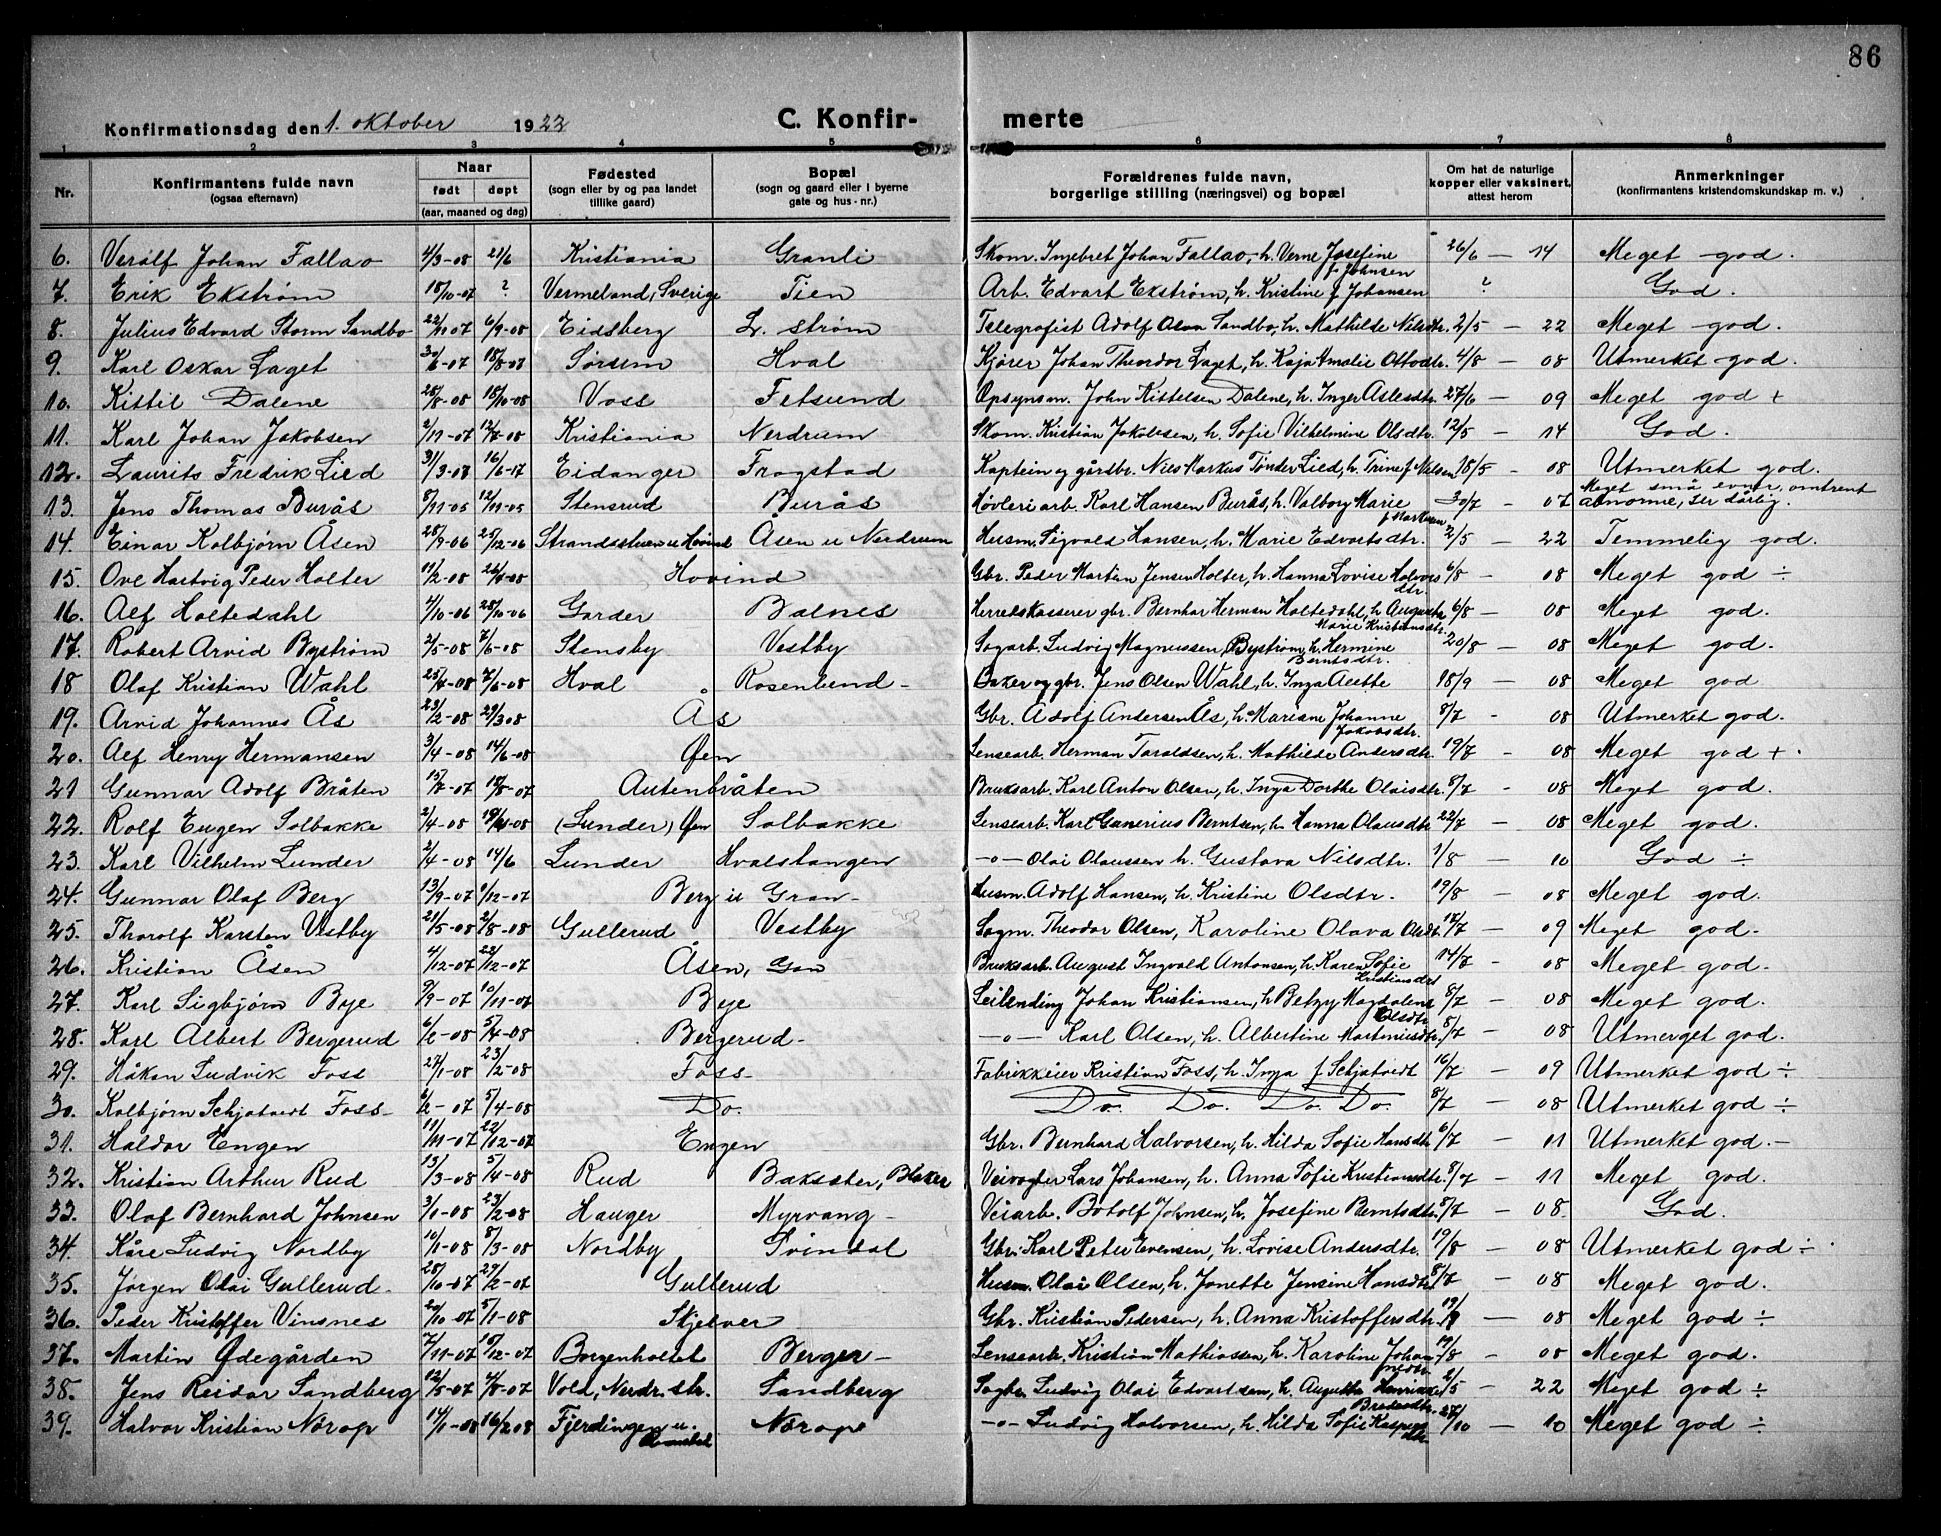 86
Konfirmationsdag den 1. oktober 1922 C. Konfirmerte
1 2 3 4 5 6 7 8
Nr. Konfirmantens fulde navn (ogsaa efternavn) Naar født døpt (aar, maaned og dag) Fødested (sogn eller by og paa landet tillike gaard) Bopæl (sogn og gaard eller i byerne gate og hus-nr.) Forældrenes fulde navn, borgerlige stilling (næringsvei) og bopæl Om hat de naturlige kopper eller vaksinert, attest herom Anmerkninger (konfirmantens kristendomskundskap m. v.)
6. Verolf Johan Fallao 4/3-08 21/6 Kristiania Granli Skom. Ingebret Johan Fallao, h. Verne Josefine f. Johnsen 26/6 - 14 Meget god.
7. Erik Ekstrøm 18/10-07 ? Vermeland, Sverige Tien Arb. Edvart Ekstrøm, h. Kristine f Johansen ? God.
8. Julius Edvard Storm Sandbo 22/11 07 6/9-08 Eidsberg L. strøm Telegrafist Adolf Olav Sandbo, h. Mathilde Nilsdtr. 2/5 - 22 Meget god.
9. Karl Oskar Laget 30/6-07 18/8-07 Sørum Hval Kjører Johan Theodor Laget, h. Kaja Amalie Ottodtr. 4/8 - 08 Utmerket god.
10. Kittil Dalene 28/8-08 18/10-08 Voss Fetsund Opsynsm. John Kittelsen Dalene, h. Inger Aslesdtr. 27/6 - 09 Meget god +
11. Karl Johan Jakobsen 2/11-07 12/8-08 Kristiania Nerdrum Skom. Kristian Jakobsen, h. Sofie Vilhelmine Olsdtr. 12/5 - 14 God.
12. Laurits Fredrik Lied 31/3-08 16/6-17 Eidanger Frogstad Kaptein og gårdbr. Nils Markus Tønder Lied, h. Trine f. Nilsen 18/5 - 08 Utmerket god.
13. Jens Thomas Burås 8/11-05 12/11-05 Stensrud Burås Høvleriarb. Karl Hansen Burås, h. Valborg Marie f Markusen 30/7 - 07 Meget små evner, omtrent abnorme, ser dårlig.
14. Einar Kolbjørn Åsen 28/9-06 25/12-06 Strandstuen u Hovind Åsen u Nerdrum Husm. Sigvald Hansen, h. Marie Edvartsdtr. 2/5 - 22 Temmelig god.
15. Ove Hartvig Peder Holter 11/2-08 26/8-08 Hovind Gbr. Peder Martin Jensen Holter, h. Hanna Lovise Halvorsdtr. 6/8 - 08 Meget god ÷
16. Alf Holtedahl 4/10-06 28/10-06 Garder Balnes Herredskasserer gbr. Bernhar Herman Holtedahl, h Augusta Marie Kristiansdtr. 6/8 - 08 Meget god.
17. Robert Arvid Bystrøm 2/5-08 7/6-08 Stensby Vestby Sagarb. Ludvig Magnussen Bystrøm, h. Hermine Berntsdtr. 20/8 - 08 Meget god.
18 Olaf Kristian Wahl 25/4-08 7/6-08 Hval Rosenlund - Baker og gbr. Jens Olsen Wahl, h. Inga Aette 18/9 - 08 Meget god
19. Arvid Johannes Ås 23/2-08 29/3 08 Ås Gbr. Adolf Andersen Ås, h. Mariane Johanne Jakobsdtr. 8/7 - 08 Utmerket god.
20. Alf Henry Hermansen 3/4-08 14/6-08 Øen Lensearb. Herman Taraldsen, h. Mathilde Andersdtr. 19/7 - 08 Meget god +.
21 Gunnar Adolf Bråten 15/7-07 18/8-07 Autenbråten Bruksarb. Karl Anton Olsen, h. Inga Dorthe Olaisdtr. 8/7 - 08 Meget god.
22. Rolf Eugen Solbakke 2/4-08 19/4-08 (Lunder) Øen Solbakke Lensearb. Karl Gunerius Berntsen, h. Hanna Olausdtr 22/7 - 08 Meget god.
23. Karl Vilhelm Lunder 2/4-08 14/6 Lunder Hvalstangen -o- Olai Olaussen h. Gustava Nilsdtr. 1/8 - 10 God ÷
24. Gunnar Olaf Berg 13/9-07 1/12-07 Berg u Gran - Husm. Adolf Hansen, h. Kristine Olsdtr. 19/8 - 08 Meget god.
25. Thorolf Karsten Vestby 21/5-08 2/8-08 Gullerud Vestby Sagm. Theodor Olsen, Karoline Olava Olsdtr. 12/7 - 09 Meget god.
26. Kristian Åsen 4/12-07 22/12-07 Åsen, Gan Bruksarb. August Ingvald Antonsen, h. Karen Sofie Kristiansdtr 14/7 - 08 Meget god.
27. Karl Sigbjørn Bye 9/9-07 10/11-07 Bye Leilending Johan Kristiansen, h Betzy Magdalena Olsdtr. 8/7 - 08 Meget god.
28. Karl Albert Bergerud 6/2-08 5/4-08 Bergerud - -o- Karl Olsen, h. Albertine Martiniusdtr. 8/7 - 08 Utmerget god.
29. Håkon Ludvik Foss 27/1-08 23/2-08 Foss - Fabrikkeier Kristian Foss, h. Inga f Schjatvedt 16/7 - 09 Utmerket god ÷
30. Kolbjørn Schjatvedt Foss - 6/2-07 5/4-08 Do. Do. Do. Do. Do. 8/7 - 08 Utmerket god ÷
31. Haldor Engen 11/11-07 22/12-07 Engen Gbr. Bernhard Halvorsen, h. Hilda Sofie Hansdtr. 6/7 - 11 Utmerket god. -
32. Kristian Arthur Rud 13/3-08 5/4-08 Rud Baksæter, Blaker Veivogter Lars Johansen, h. Anna Sofie Kristiansdtr. 8/7 - 11 Meget god.
33. Olaf Bernhard Johnsen 3/1-08 23/2-08 Hauger Myrvang - Veiarb. Botolf Johnsen, h. Josefine Berntsdtr. 8/7 - 08 God.
34. Kåre Ludvig Nordby 10/1-08 8/3-08 Nordby Svindal Gbr. Karl Peter Evensen, h. Lovise Andersdtr. 19/8 - 08 Utmerket god ÷.
35. Jørgen Olai Gullerud - 28/10-07 29/2-07 Gullerud Husm. Olai Olsen, h. Jonette Jensine Hansdtr. 8/7 - 08 Meget god.
36. Peder Kristoffer Vinsnes 20/10-07 5/1-08 Skjelver Gbr. Kristian Pedersen, h. Anna Kristoffersdtr. 19/8 - 08 Meget god ÷
37. Martin Ødegården 7/11-07 15/12-07 Borgenholtet Berger - Lensearb. Kristian Mathiassen, h. Karoline Johannedtr. 19/8 - 08 Meget god.
38. Jens Reidar Sandberg 12/5-07 4/8-07 Vold, Nerdr. str. Sandberg Sagbr. Ludvig Olai Edvartsen, h. Augusta Henrikke Bredesdtr. 2/5 - 22 Meget god ÷
39. Halvor Kristian Nårop 14/1-08 16/2 08 Fjerdingen u. Nårop -o- Ludvig Halvorsen, h. Hilda Sofie Kaspersdtr 27/10 - 10 Meget god ÷